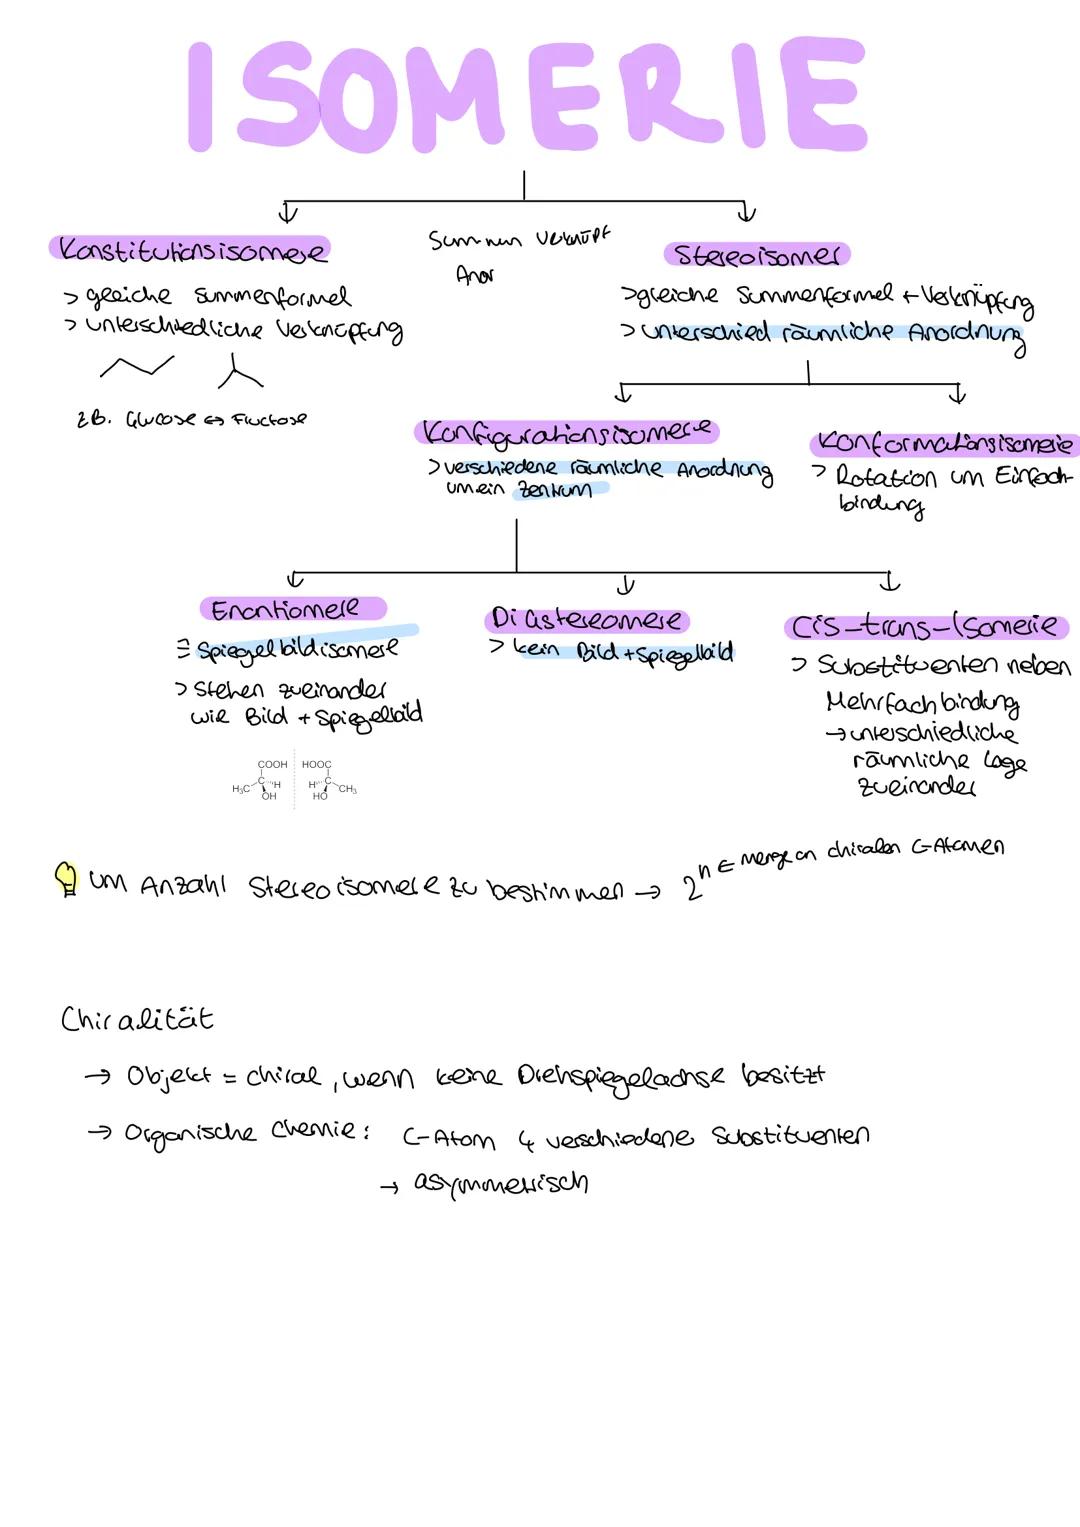 ISOMERIE
Konstitutionsisomere
> gleiche Summenformel
> unterschiedliche Verknüpfung
zB. Glucose ↔ Fructose
Summen Verknüpf
Anor
Stereoisomer
> gleiche Summenformel + Verknüpfung
> unterschied räumliche Anordnung
Konfigurationsisomere
> verschiedene räumliche Anordnung
um ein Zentrum
Konformationsisomerie
> Rotation um Einfach-
bindung
Enantiomere
≡ Spiegelbildisomere
> stehen zueinander
wie Bild + Spiegelbild
COOH HOOC
H₃C C H H C CH₃
OH HO
Diastereomere
> kein Bild + Spiegelbild
Cis-trans-Isomerie
> Substituenten neben
Mehrfachbindung
→ unterschiedliche
räumliche Lage
zueinander
um Anzahl Stereoisomere zu bestimmen → 2ⁿ ← Menge an chiralen C-Atomen
Chiralität
→ Objekt = chiral, wenn keine Drehspiegelachse besitzt
→ Organische Chemie: C-Atom 4 verschiedene Substituenten
→ asymmetrisch